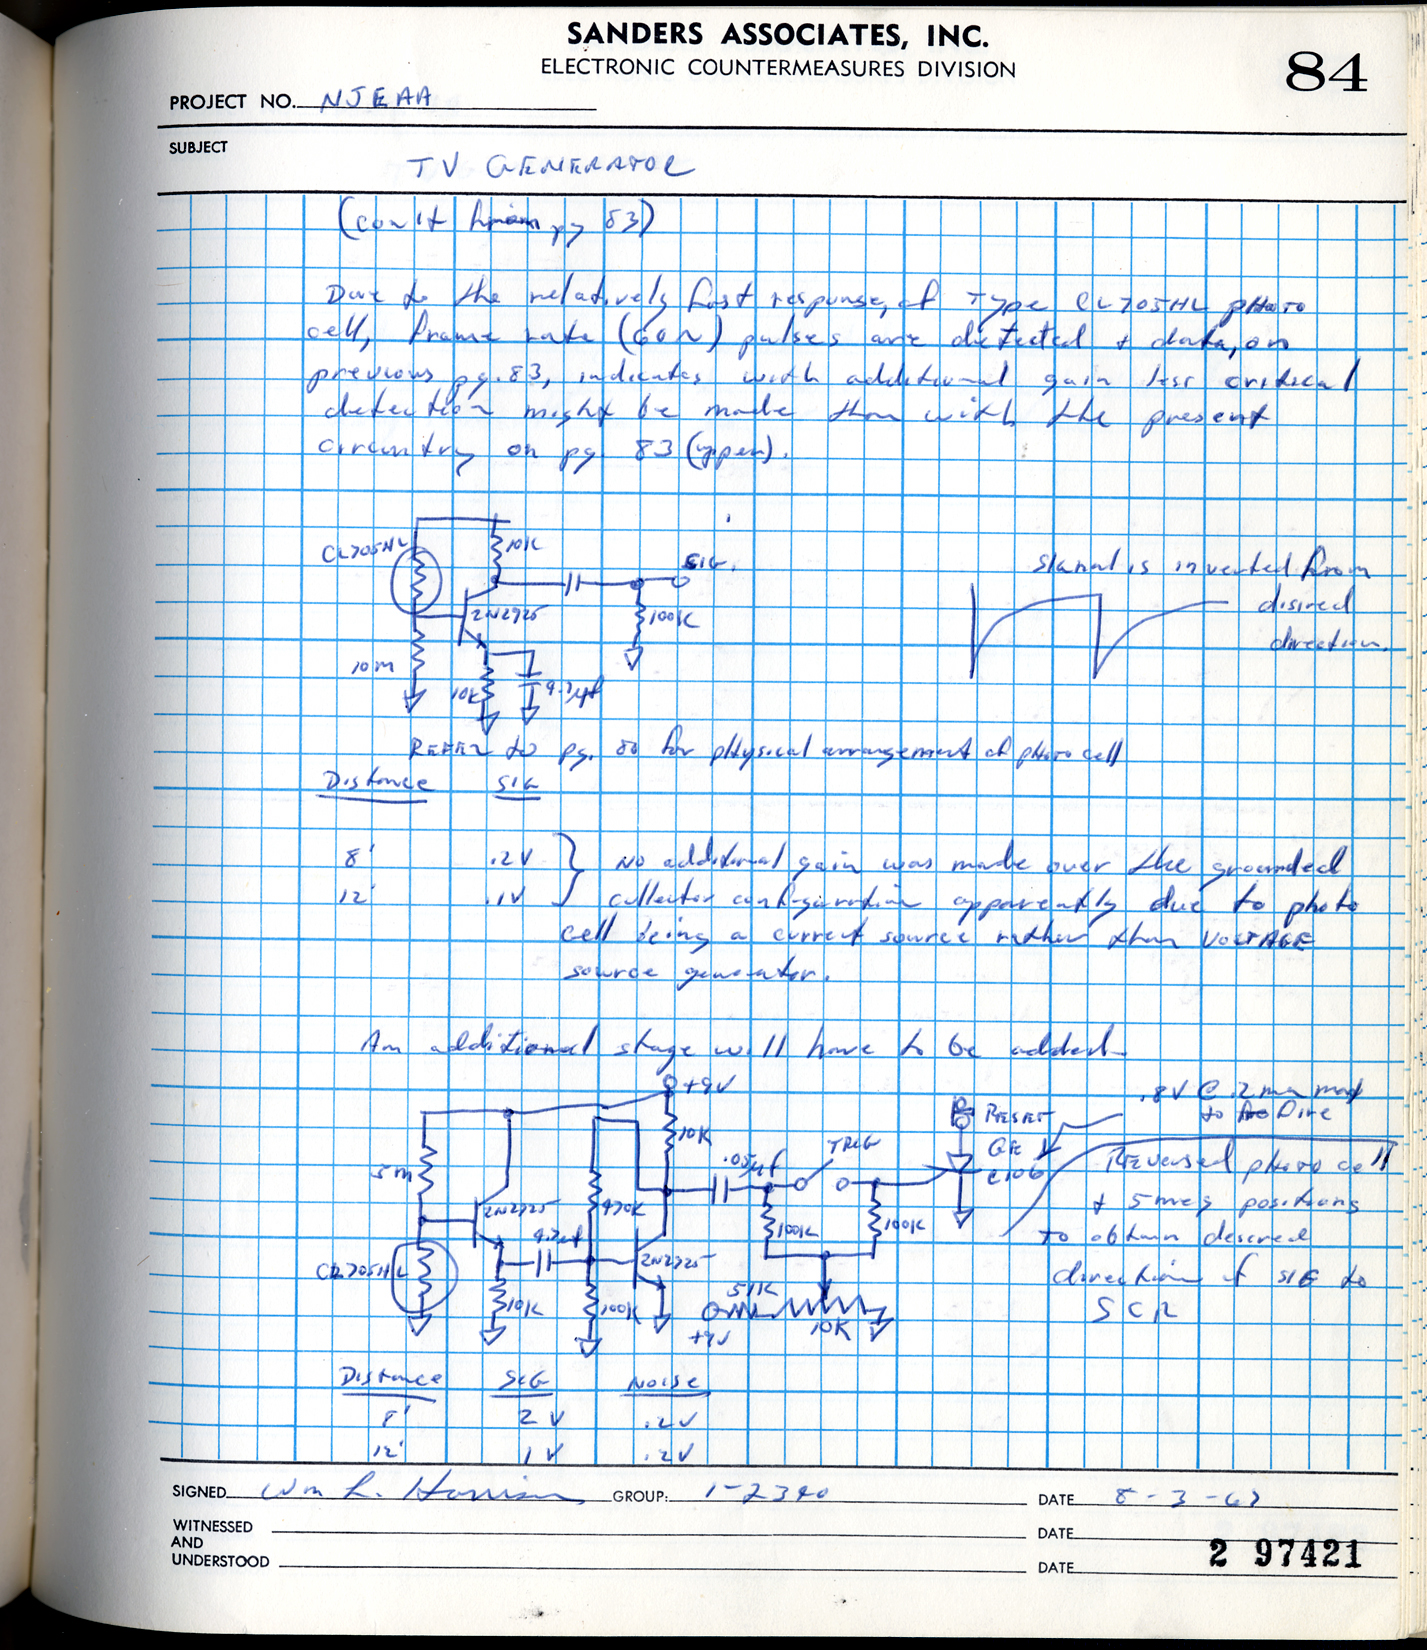 SANDERS ASSOCIATES, INC.
ELECTRONIC COUNTERMEASURES DIVISION
84
PROJECT NO. NJEAA
SUBJECT
TV GENERATOR
(con't from pg 83)
Due to the relatively fast response, of Type CL705HL photo
cell, frame rate (60~) pulses are detected + data, on
previous pg. 83, indicates with additional gain less critical
detection might be made than with the present
circuitry on pg 83 (upper).
CL705HL
10K
SIG.
2N2925
100K
10M
10K
4.7µf
Signal is inverted from
disired
direction.
REFER to pg. 80 for physical arrangement of photo cell
Distance SIG
8' .2V
12' .1V
No additional gain was made over the grounded
collector configuration apparently due to photo
cell being a current source rather than VOLTAGE
source generator.
An additional stage will have to be added.
+9V
10K
5M
2N2925
470K
4.7µf
2N2925
CL705HL
10K
100K
.05µf
TRIG
100K
100K
51K
+9V
10K
RESET
GE
C106
.8V @ .2ma max
to Fire
Reversed photo cell
+ 5 meg positions
to obtain desired
direction of SIG to
SCR
Distance SIG Noise
8' 2V .2V
12' 1V .2V
SIGNED Wm L. Harrison GROUP: 1-2340 DATE 8-3-67
WITNESSED
AND
UNDERSTOOD
DATE
DATE
2 97421